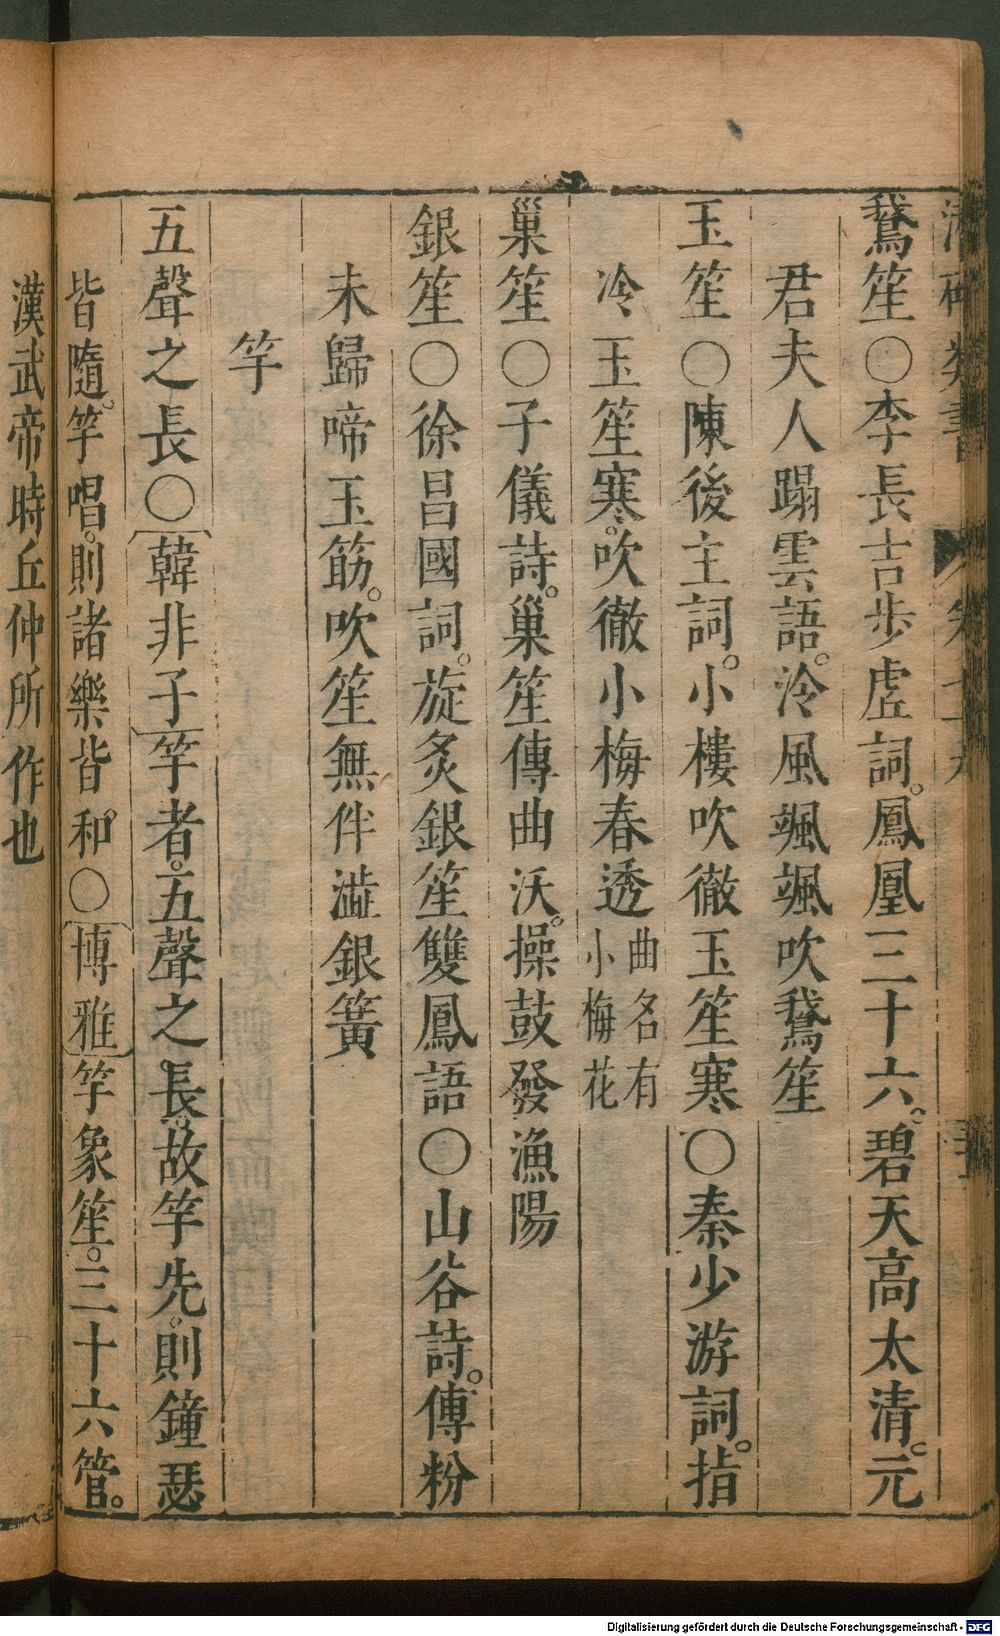 鵞笙○李長吉步虛詞。鳳凰三十六。碧天高太清。元
君夫人蹋雲語。泠風颯颯吹鵞笙
玉笙○陳後主詞。小樓吹徹玉笙寒○秦少游詞。指
冷玉笙寒。吹徹小梅春透曲名有小梅花
巢笙○子儀詩。巢笙傳曲沃。操鼓發漁陽
銀笙○徐昌國詞。旋炙銀笙雙鳳語○山谷詩。傅粉
未歸啼玉筯。吹笙無伴澁銀簧
竽
五聲之長○韓非子竽者。五聲之長。故竽先。則鐘瑟
皆隨。竽唱。則諸樂皆和○博雅竽象笙。三十六管。
漢武帝時丘仲所作也
Digitalisierung gefördert durch die Deutsche Forschungsgemeinschaft - DFG